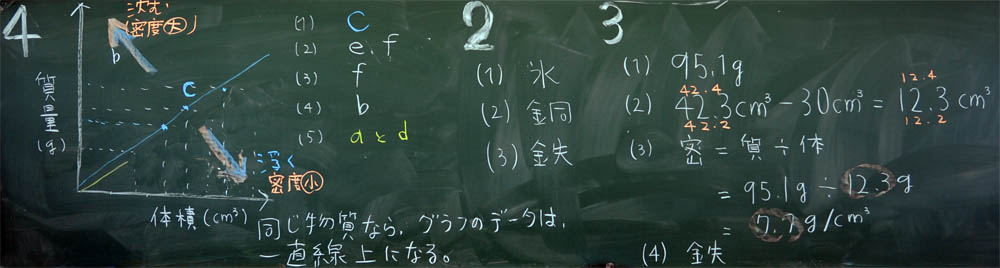 4
沈む
(密度大)
b
質量
(g)
c
浮く
密度小
体積(cm³)
(1) c
(2) e, f
(3) f
(4) b
(5) aとd
同じ物質なら、グラフのデータは、
一直線上になる。
2
(1) 氷
(2) 銅
(3) 鉄
3
(1) 95.1g
42.4
12.4
(2) 42.3cm³-30cm³=12.3cm³
42.2
12.2
(3) 密=質÷体
=95.1g÷12.3g
=7.7g/cm³
(4) 鉄